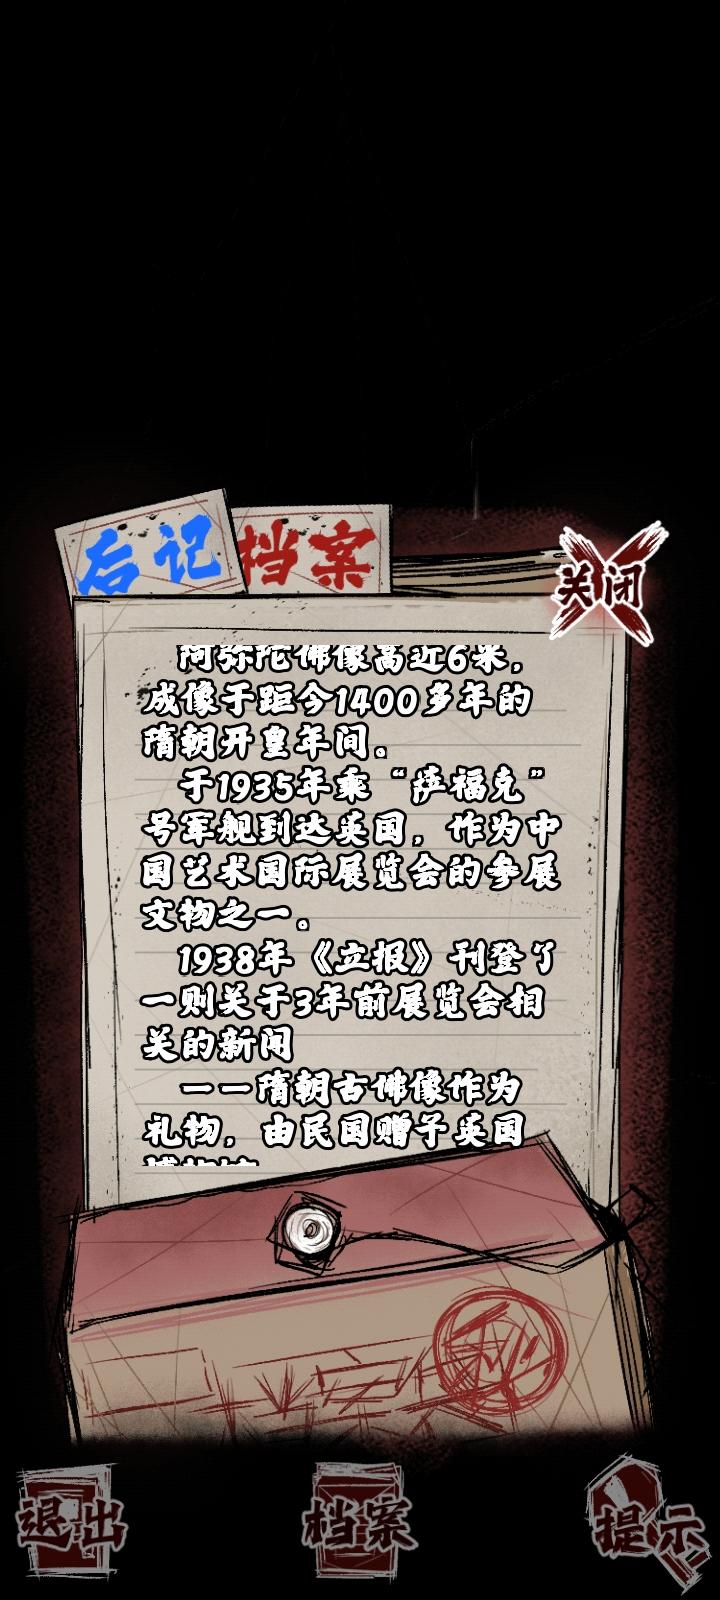 后记
档案
关闭
阿弥陀佛像高近6米，
成像于距今1400多年的
隋朝开皇年间。
于1935年乘“萨福克”
号军舰到达英国，作为中
国艺术国际展览会的参展
文物之一。
1938年《立报》刊登了
一则关于3年前展览会相
关的新闻
——隋朝古佛像作为
礼物，由民国赠予英国
退出
档案
提示